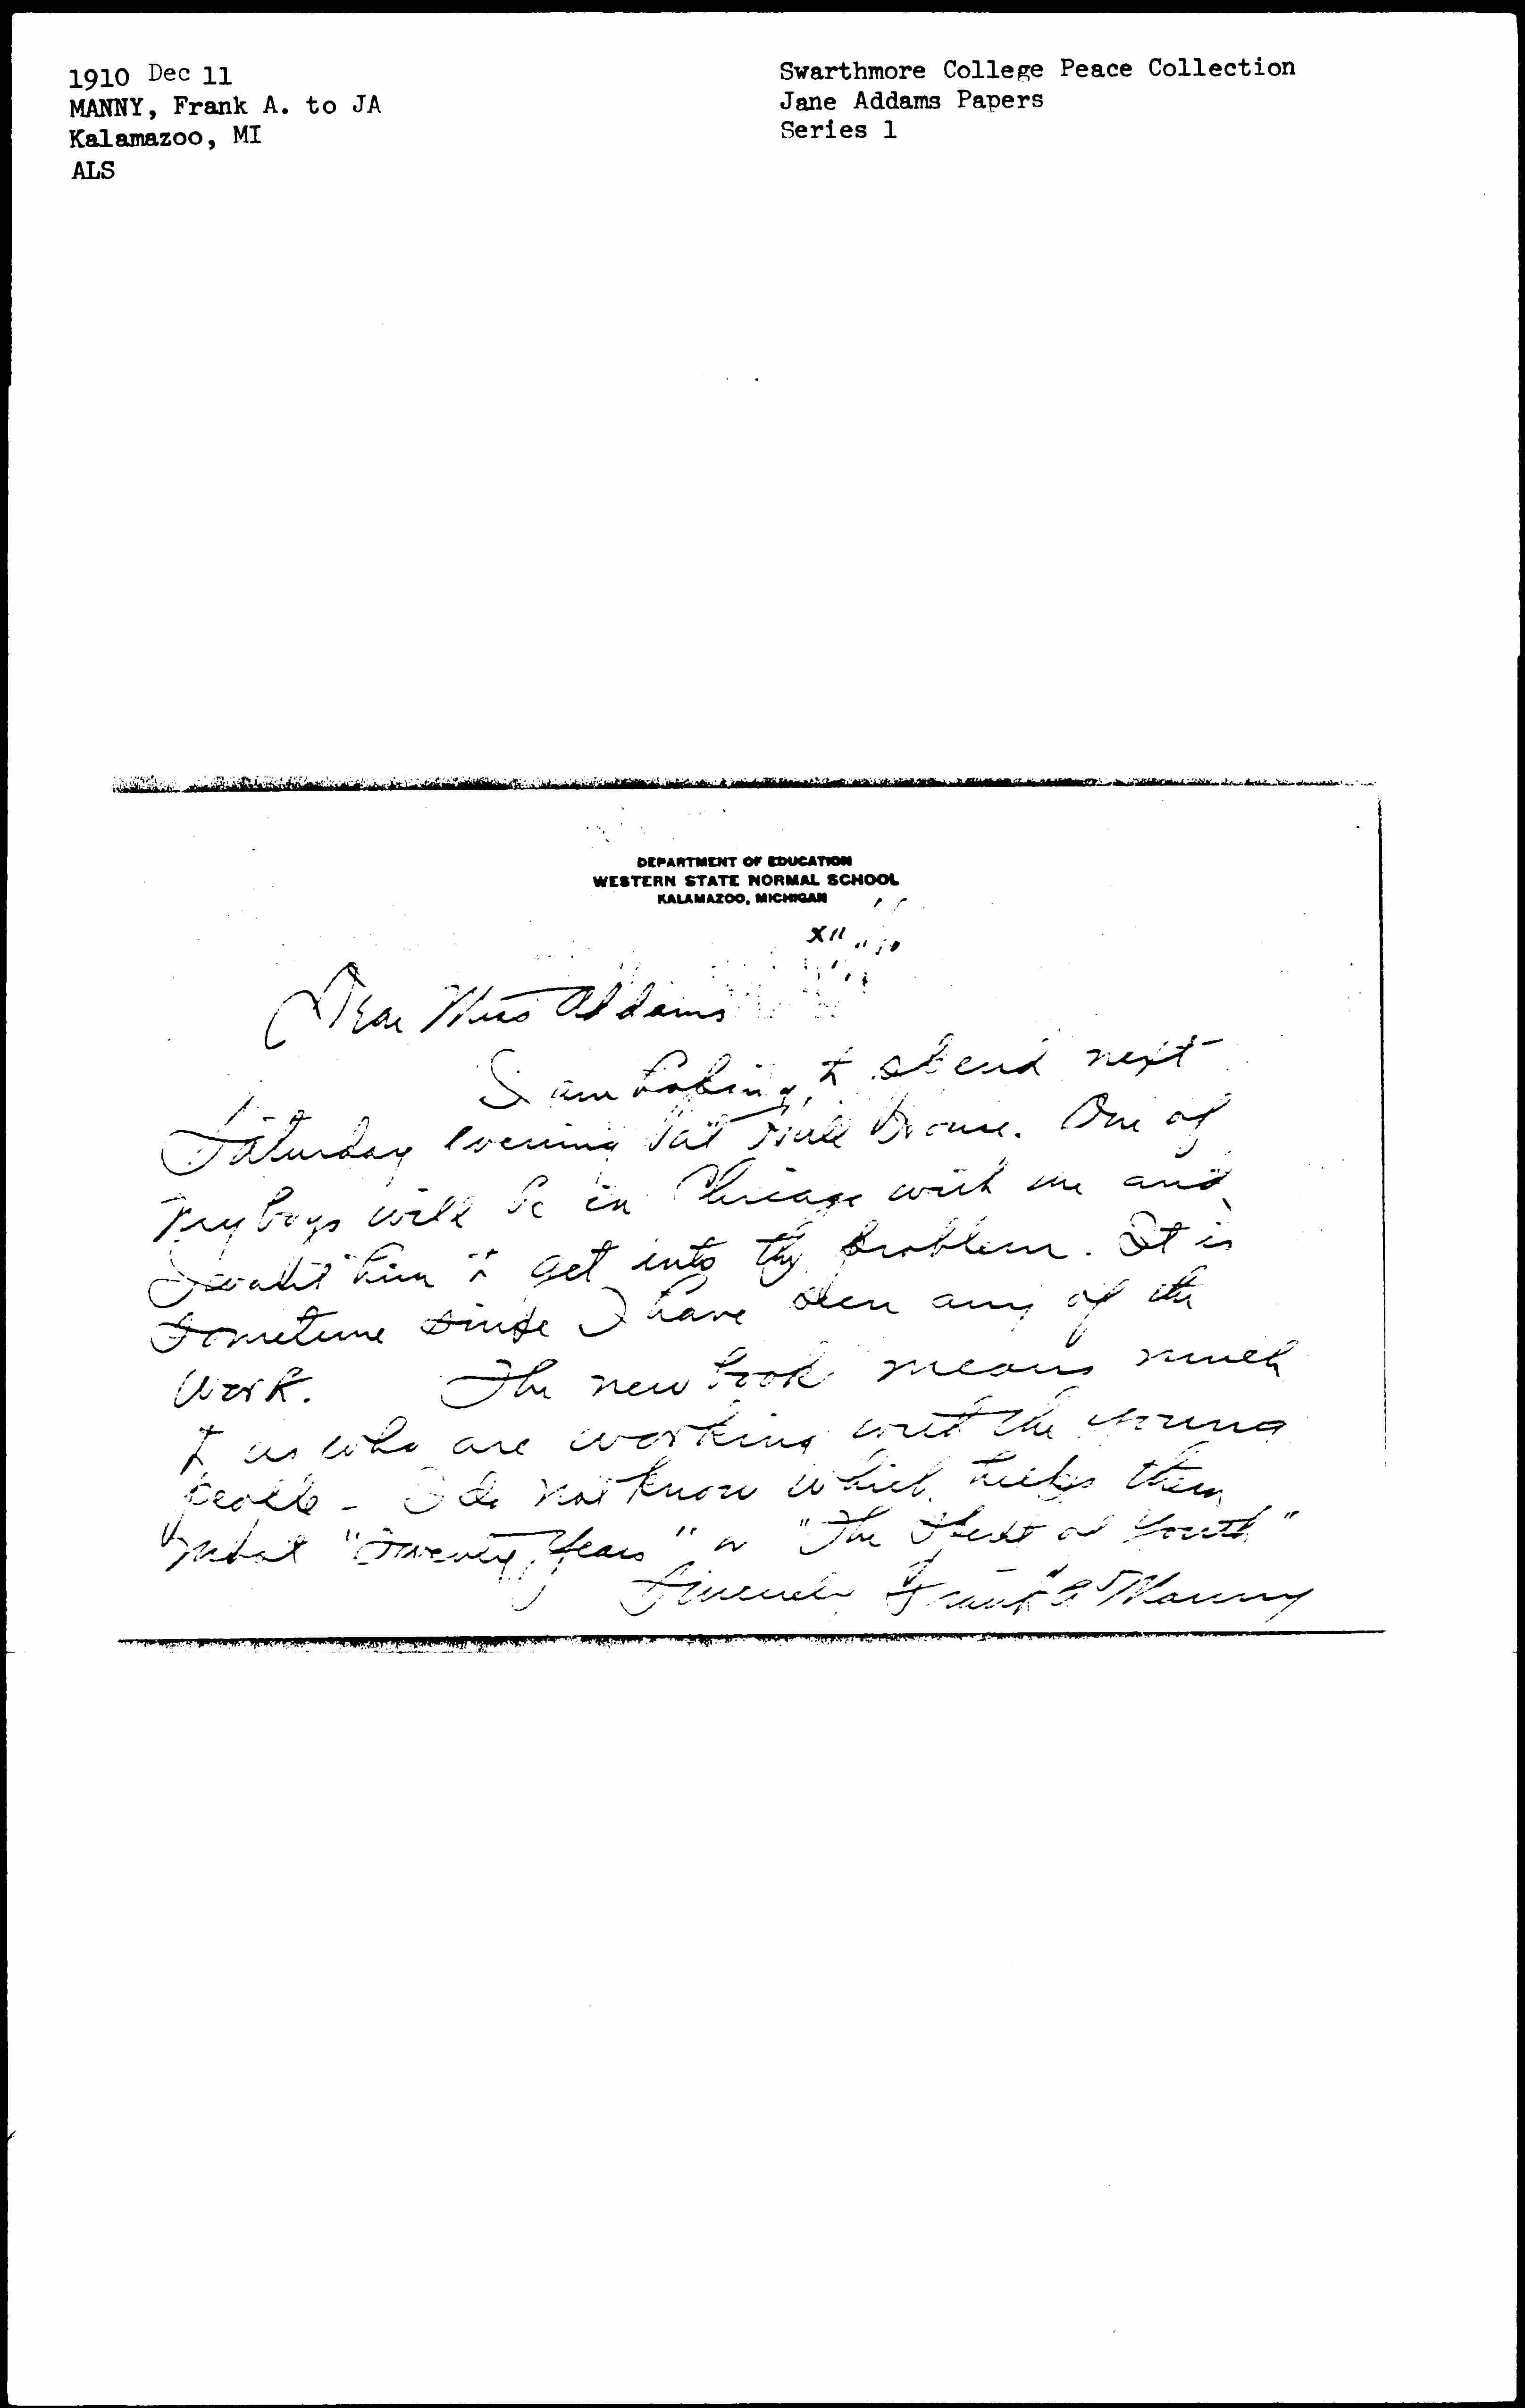 1910 Dec 11
MANNY, Frank A. to JA
Kalamazoo, MI
ALS
Swarthmore College Peace Collection
Jane Addams Papers
Series 1
DEPARTMENT OF EDUCATION
WESTERN STATE NORMAL SCHOOL
KALAMAZOO, MICHIGAN
XII 11 10
Dear Miss Addams
I am hoping to spend next
Saturday evening at Hull House. One of
my boys will be in Chicago with me and
I want him to get into the problem. It is
sometime since I have seen any of the
work. The new book means much
to us who are working with the young
people - I do not know which helps them
most "Twenty Years" or "The Spirit of Youth"
Sincerely Frank A Manny